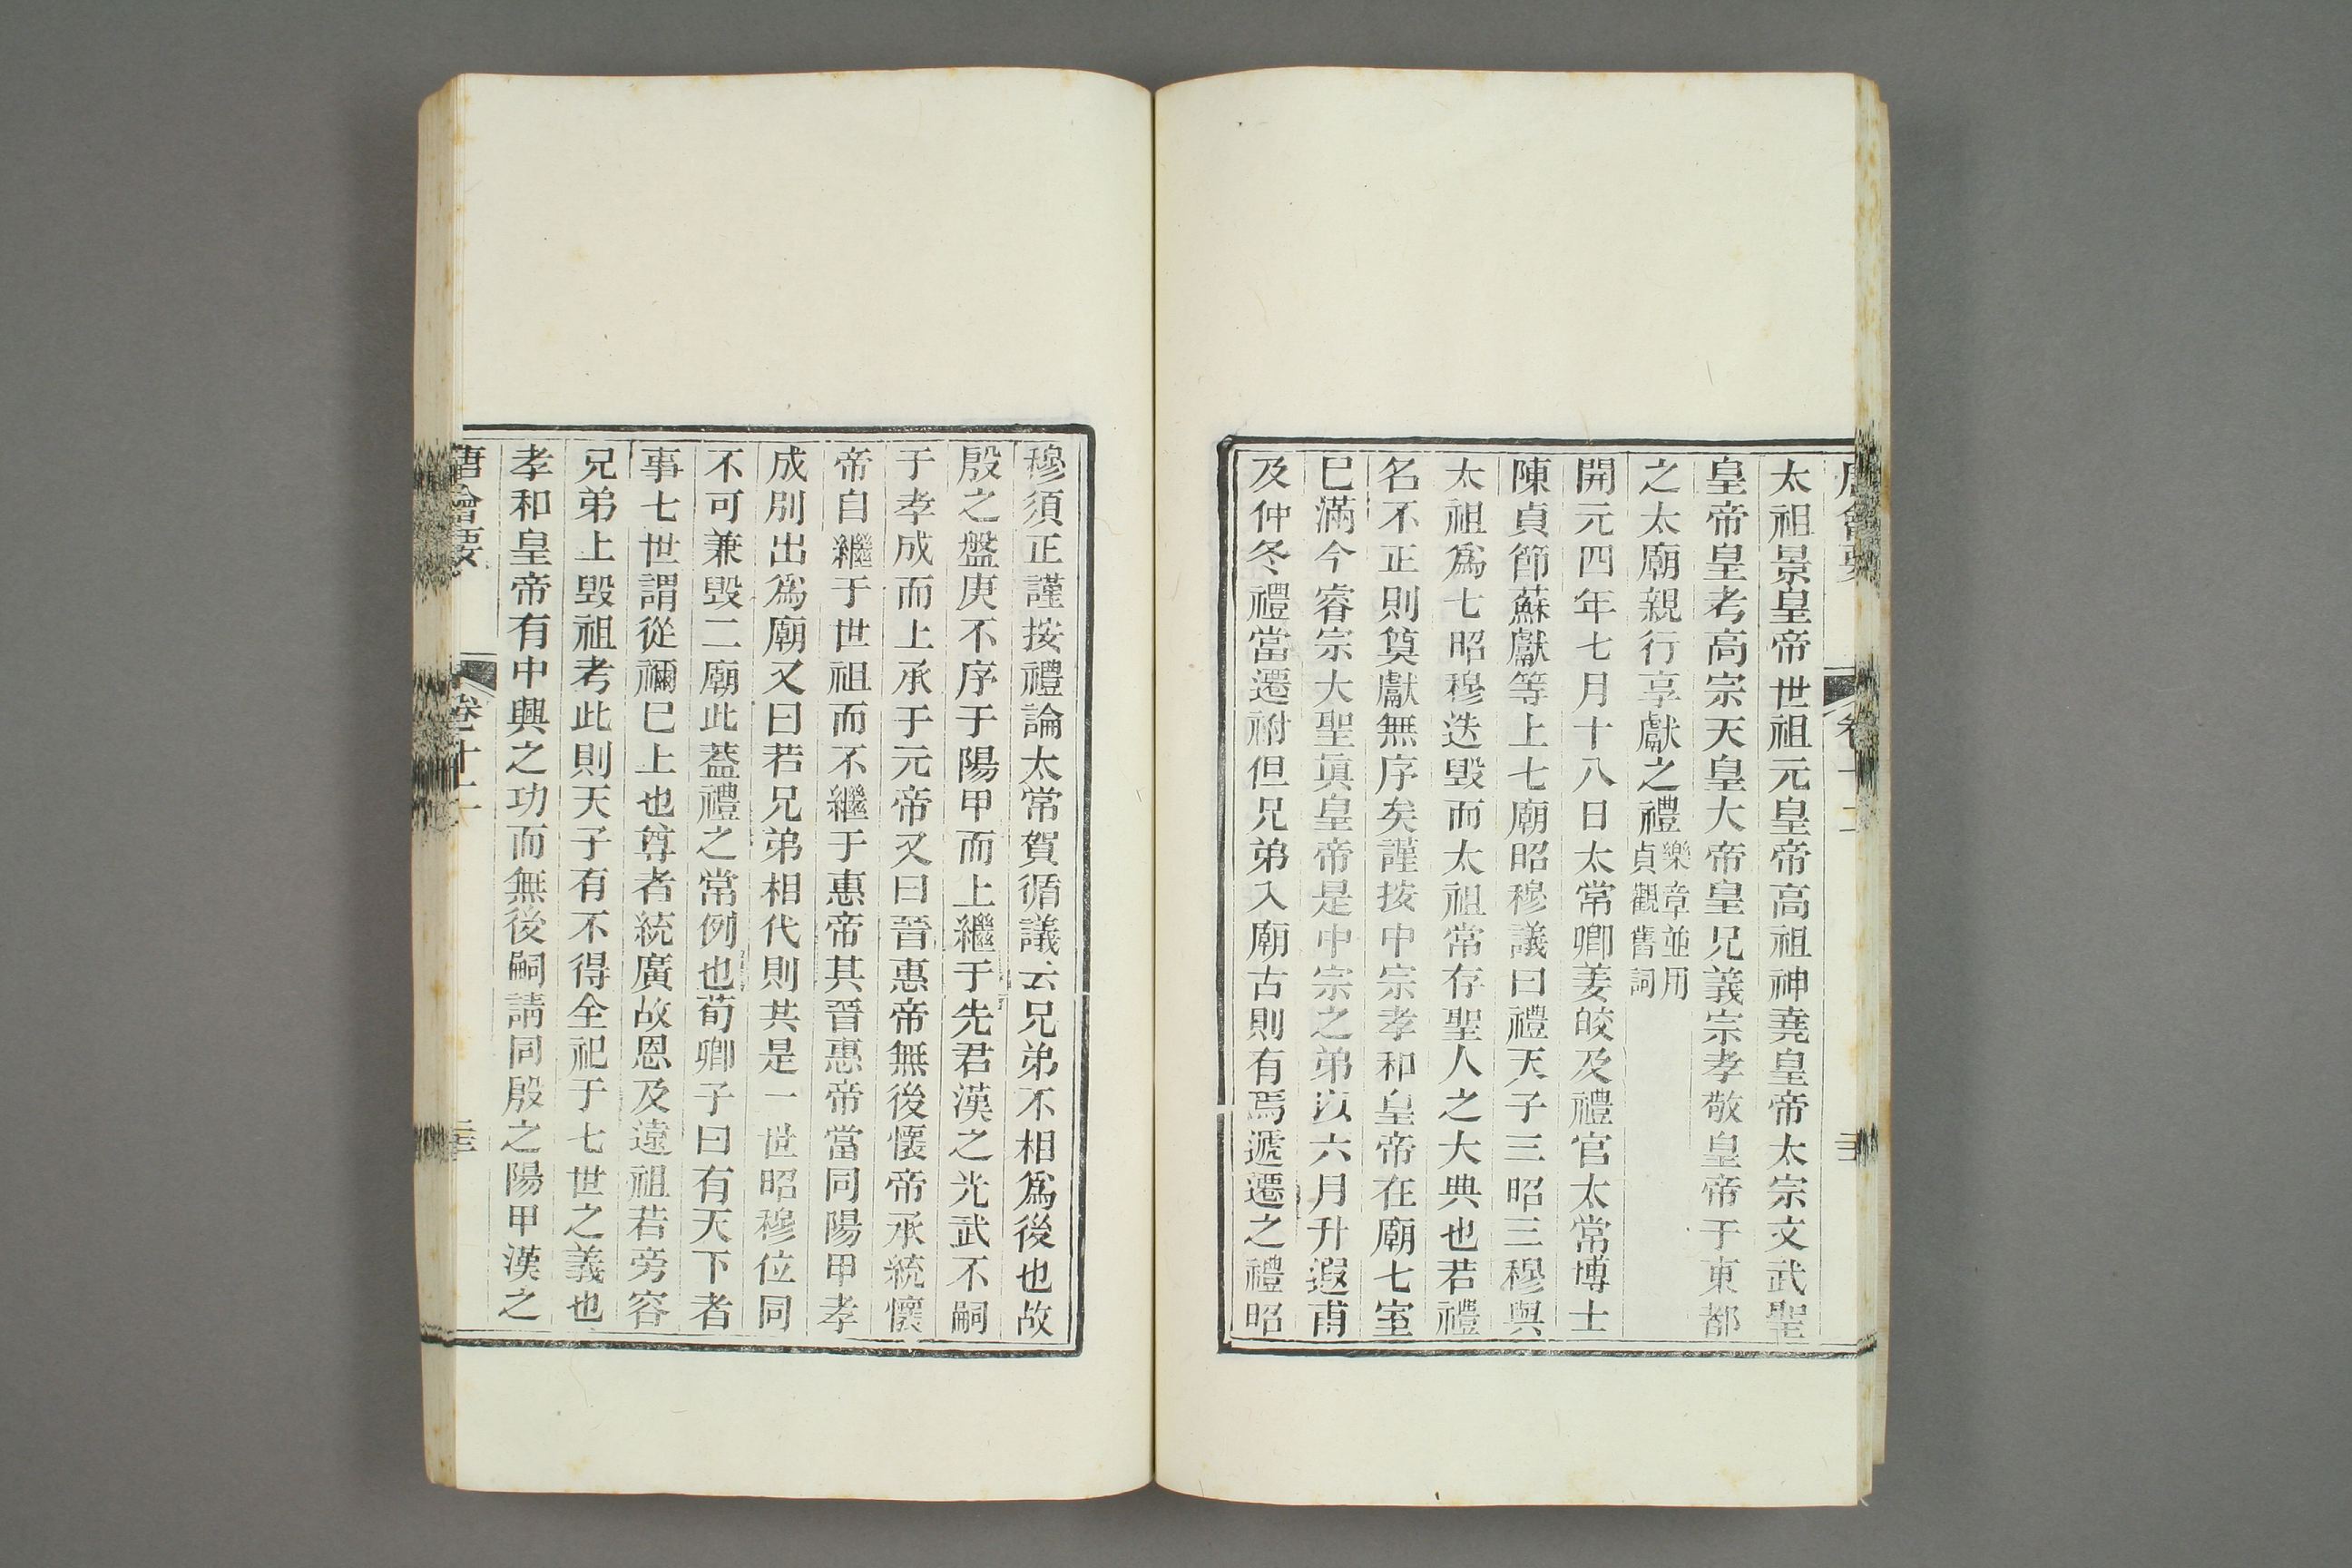 太祖景皇帝世祖元皇帝高祖神堯皇帝太宗文武聖
皇帝皇考高宗天皇大帝皇兄義宗孝敬皇帝于東都
之太廟親行享獻之禮樂章並用貞觀舊詞
開元四年七月十八日太常卿姜皎及禮官太常博士
陳貞節蘇獻等上七廟昭穆議曰禮天子三昭三穆與
太祖爲七昭穆迭毁而太祖常存聖人之大典也若禮
名不正則奠獻無序矣謹按中宗孝和皇帝在廟七室
已滿今睿宗大聖眞皇帝是中宗之弟以六月升遐甫
及仲冬禮當遷祔但兄弟入廟古則有焉遞遷之禮昭
穆須正謹按禮論太常賀循議云兄弟不相爲後也故
殷之盤庚不序于陽甲而上繼于先君漢之光武不嗣
于孝成而上承于元帝又曰晉惠帝無後懷帝承統懷
帝自繼于世祖而不繼于惠帝其晉惠帝當同陽甲孝
成別出爲廟又曰若兄弟相代則共是一世昭穆位同
不可兼毁二廟此蓋禮之常例也荀卿子曰有天下者
事七世謂從禰已上也尊者統廣故恩及遠祖若旁容
兄弟上毁祖考此則天子有不得全祀于七世之義也
孝和皇帝有中興之功而無後嗣請同殷之陽甲漢之
唐會要 卷十二